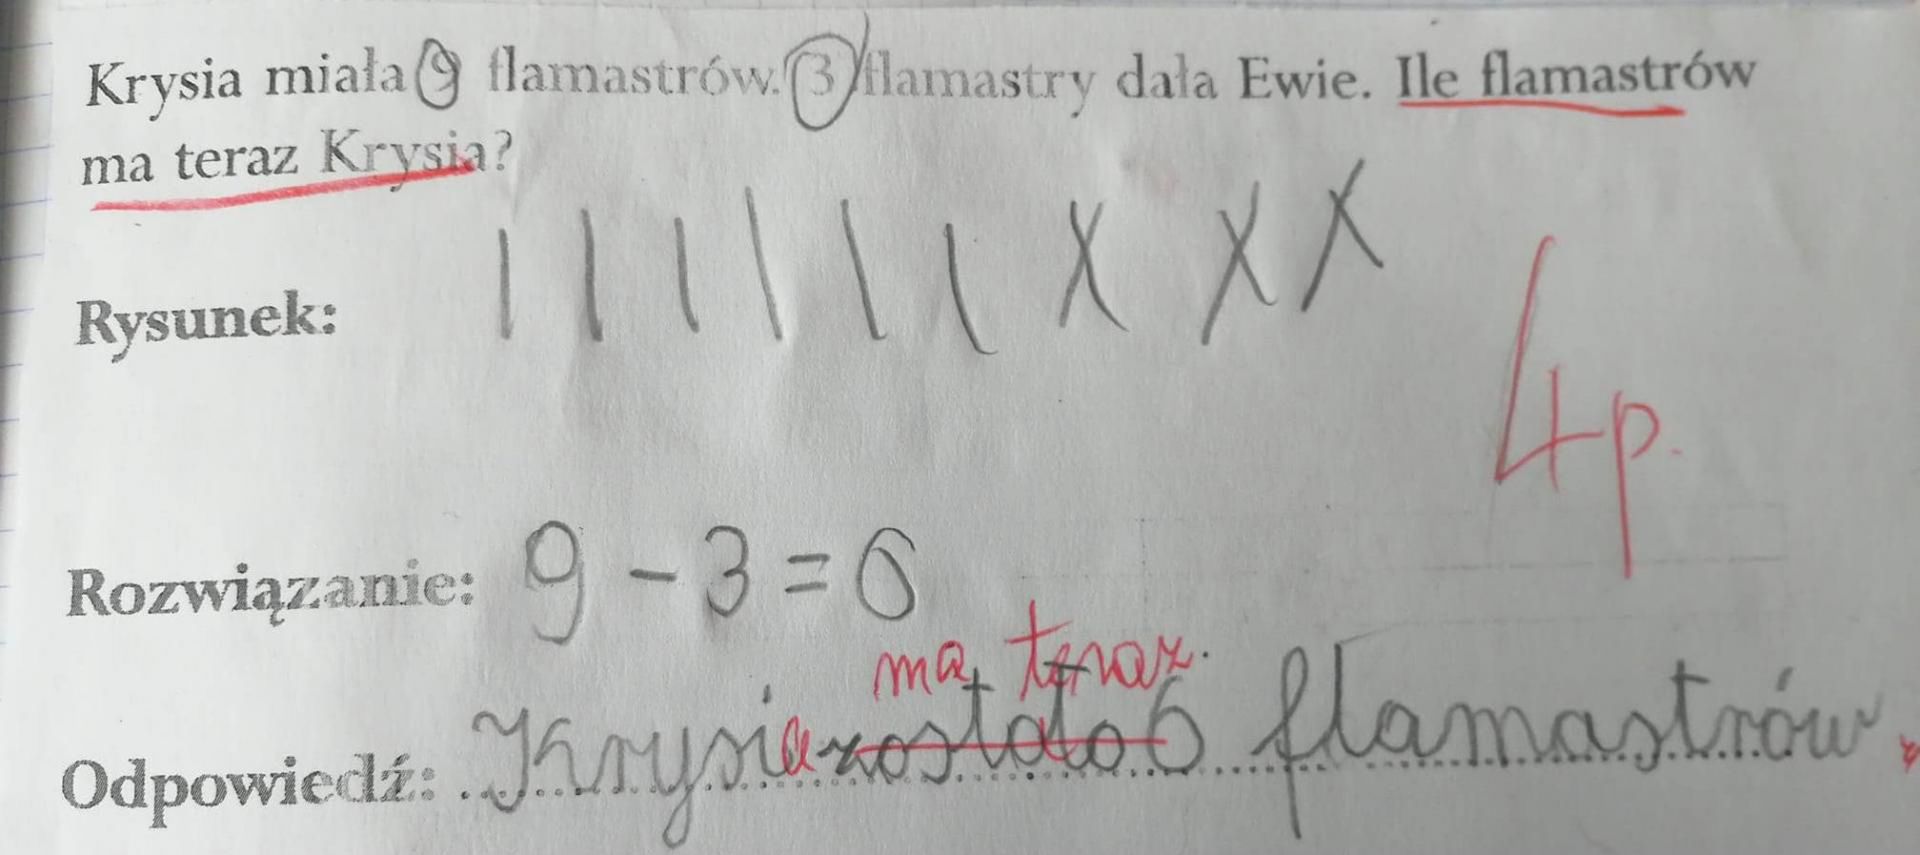 Krysia miała 9 flamastrów. 3 flamastry dała Ewie. Ile flamastrów
ma teraz Krysia?
Rysunek:
4p.
Rozwiązanie: 9 - 3 = 6
ma teraz
Odpowiedź: Krysia zostało 6 flamastrów.